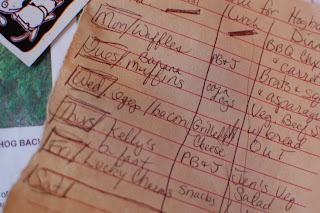 for Hogba
Lunch
Dinn
Mon/Waffles PB & J BBQ Chi
& carro
Tues/Banana muffins corn dogs Brats & sq
& asparagus
Wed/eggs/bacon Grilled Cheese Veg Beef S
w/bread
Thurs/Kelly's b.fast PB & J OUT
Fri/Lucky Charms Snacks Jen's Veg
Salad
Sat/
HOG BAC